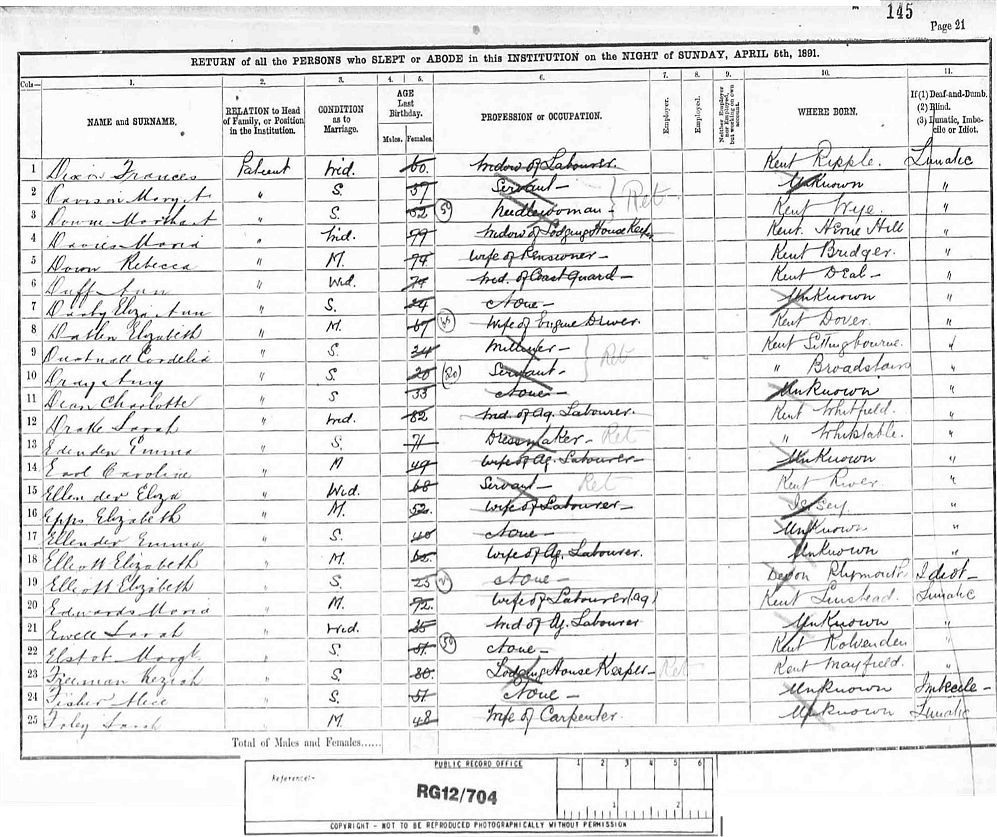 145
Page 21
RETURN of all the PERSONS who SLEPT or ABODE in this INSTITUTION on the NIGHT of SUNDAY, APRIL 5th, 1891.
Cols— 1. 2. 3. 4. 5. 6. 7. 8. 9. 10. 11.
NAME and SURNAME. RELATION to Head of Family, or Position in the Institution. CONDITION as to Marriage. AGE Last Birthday. Males. Females. PROFESSION or OCCUPATION. Employer. Employed. Neither Employer nor Employed, but working on own account. WHERE BORN. If (1) Deaf-and-Dumb. (2) Blind. (3) Lunatic, Imbecile or Idiot.
1 Dixon Frances Patient Wid. 60. Widow of Labourer. Kent Ripple. Lunatic
2 Davison Mary A " S. Servant — Ret Unknown "
3 Downe Martha A " S. 52 50 Needlewoman — Kent Wye. "
4 Davies Maria " Wid. Widow of Lodging House Keeper Kent. Herne Hill "
5 Down Rebecca " M. Wife of Pensioner — Kent Bridger. "
6 Duff Ann " Wid. Wid. of Coast Guard — Kent Deal — "
7 Darby Eliza Ann " S. None — Unknown "
8 Elizabeth " M. 67 Wife of Engine Driver. Kent Dover. "
9 Cordelia " S. 24 Milliner — Ret Kent Sittingbourne. "
10 " S. Servant — " Broadstairs "
11 Dean Charlotte " S 33 None — Unknown "
12 Drake Sarah " Wid. 82 Wid. of Ag. Labourer. Kent Whitfield. "
13 Edenden Emma " S. 71 Dressmaker — Ret " Whitstable. "
14 Earl Caroline " M 49 Wife of Ag. Labourer — Unknown "
15 Ellender Eliza " Wid. 68 Servant — Ret Kent River. "
16 Epps Elizabeth " M. 52. Wife of Labourer — Jersey. "
17 Ellender Emma " S. 40 None — Unknown "
18 Elliott Elizabeth " M. Wife of Ag. Labourer. Unknown "
19 Elliott Elizabeth " S 25 None — Devon Plymouth Idiot —
20 Edwards Maria " M. 72. Wife of Labourer (ag) Kent Linstead. Lunatic
21 Ewell Sarah " Wid. Wid of Ag. Labourer Unknown "
22 Elstob Margt " S. 51. 50 None — Kent Rolvenden "
23 Freeman Keziah " S. 30. Lodging House Keeper — Ret Kent Mayfield. "
24 Fisher Alice " S. 51 None — Unknown Imbecile —
25 Foley Sarah " M. 48 Wife of Carpenter. Unknown Lunatic
Total of Males and Females......
PUBLIC RECORD OFFICE
Reference:-
RG12/704
1 2 3 4 5 6
1 2
COPYRIGHT - NOT TO BE REPRODUCED PHOTOGRAPHICALLY WITHOUT PERMISSION